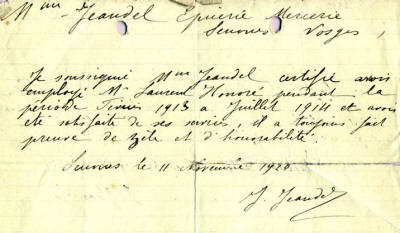 Mme Jeandel Epicerie Mercerie
Senones Vosges,
Je soussigné Mme Jeandel certifie avoir
employé Mr Laurent Honoré pendant la
période Février 1913 a Juillet 1914 et avoir
été satisfaite de ses services, il a toujours fait
preuve de zèle et d'honorabilité.
Senones le 11 Novembre 1920
J. Jeandel